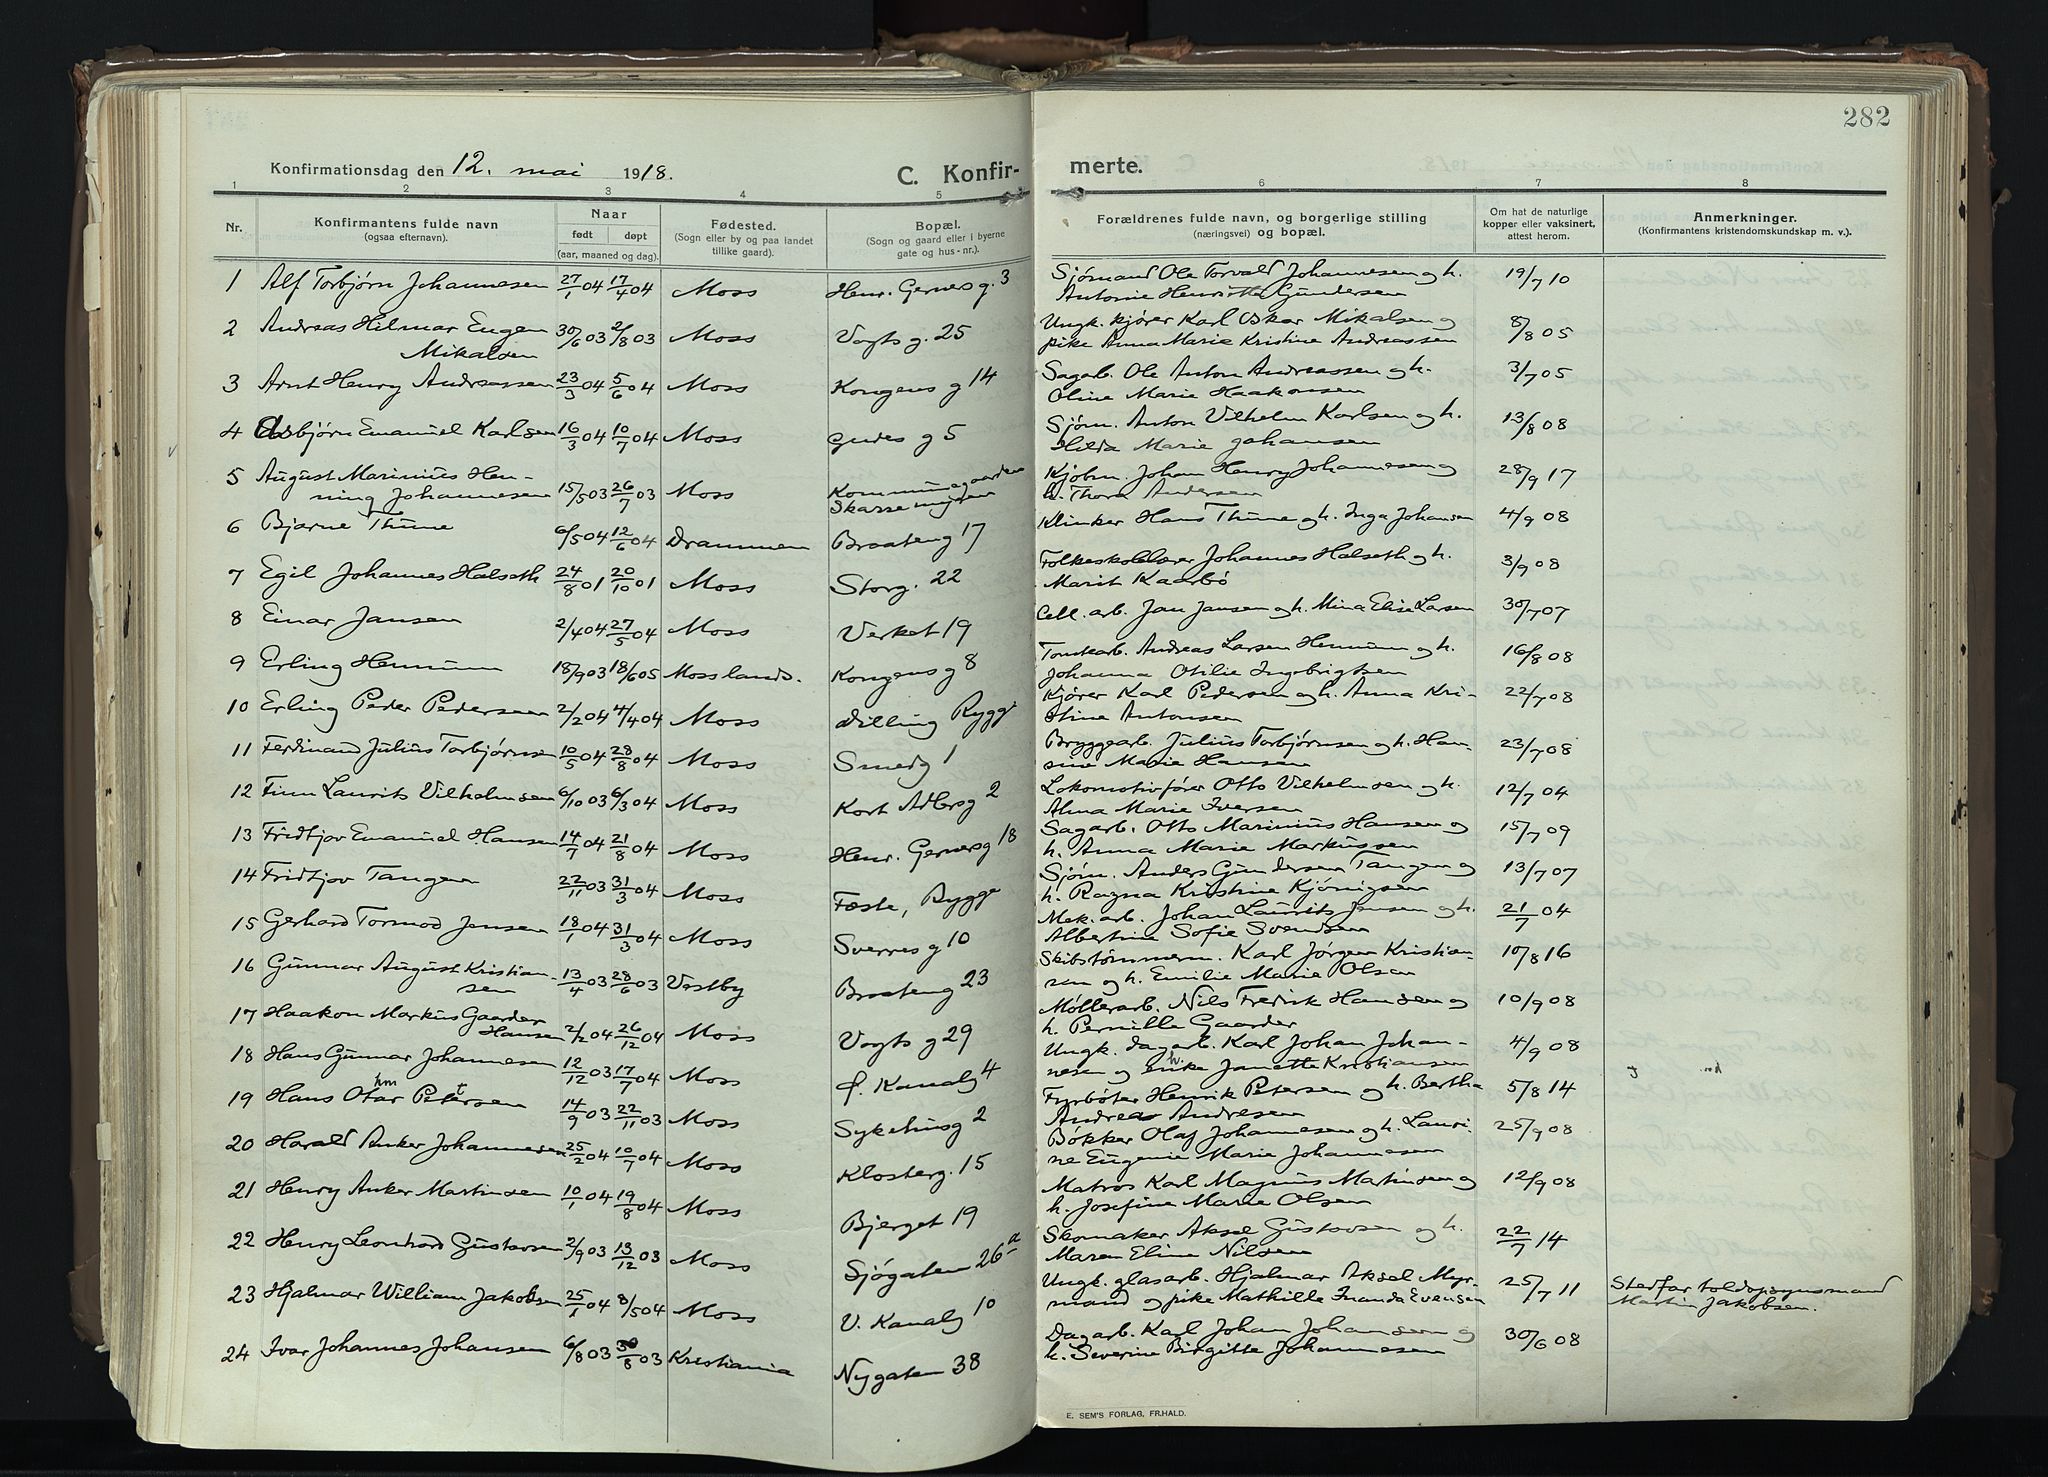 282
Konfirmationsdag den 12. mai 1918. C. Konfir- merte.
1 2 3 4 5 6 7 8
Nr. Konfirmantens fulde navn (ogsaa efternavn). Naar født døpt (aar, maaned og dag). Fødested. (Sogn eller by og paa landet tillike gaard). Bopæl. (Sogn og gaard eller i byerne gate og hus-nr.). Forældrenes fulde navn, og borgerlige stilling (næringsvei) og bopæl. Om hat de naturlige kopper eller vaksinert, attest herom. Anmerkninger. (Konfirmantens kristendomskundskap m. v.).
1 Alf Torbjørn Johannesen 27/1 04 17/4 04 Moss Henr. Gernes g. 3 Sjømand Ole Torvald Johannesen og h. 19/7 10
Antonie Henriette Gundersen
2 Andreas Hilmar Eugen 30/6 03 2/8 03 Moss Vogts g. 25 Ungk. kjører Karl Oskar Mikalsen og 8/8 05
Mikalsen pike Anna Marie Kristine Andreassen
3 Arnt Henry Andreassen 23/3 04 5/6 04 Moss Kongens g 14 Sagarb. Ole Anton Andreassen og h. 3/7 05
Oline Marie Haakonsen
4 Asbjørn Emanuel Karlsen 16/3 04 10/7 04 Moss Gudes g 5 Sjøm. Anton Vilhelm Karlsen og h. 13/8 08
Hilda Marie Johansen
5 August Marinius Hen- 15/5 03 26/7 03 Moss Kommunegaarden Kjøbm. Johan Henry Johannesen og 28/9 17
ning Johannesen Skarremyren h. Thora Andersen
6 Bjarne Thune 6/5 04 12/6 04 Drammen Braateng 17 Klinker Hans Thune og h. Inga Johansen 4/9 08
7 Egil Johannes Halseth 24/8 01 20/10 01 Moss Storg. 22 Folkeskolelærer Johannes Halseth og h. 3/9 08
Marit Kaarbø
8 Einar Jansen 2/4 04 27/5 04 Moss Verket 19 Cell. arb. Jan Jansen og h. Mina Elise Larsen 30/7 07
9 Erling Hennum 18/9 03 18/6 05 Moss lands. Kongens g 8 Tomtearb. Andreas Larsen Hennum og h. 16/8 08
Johanna Otilie Ingebrigtsen
10 Erling Peder Pedersen 2/2 04 4/4 04 Moss Dilling Rygge Kjører Karl Pedersen og h. Anna Kri- 22/7 08
stine Antonsen
11 Ferdinand Julius Torbjørnsen 10/5 04 28/8 04 Moss Smedg 1 Bryggearb. Julius Torbjørnsen og h. Han- 23/7 08
sine Marie Hansen
12 Finn Laurits Vilhelmsen 6/10 03 6/3 04 Moss Kort Adlersg 2 Lokomotivfører Otto Vilhelmsen og h. 12/7 04
Alma Marie Iversen
13 Fridtjov Emanuel Hansen 14/7 04 21/8 04 Moss Henr. Gernesg 18 Sagarb. Otto Marinius Hansen og 15/7 09
h. Anna Marie Markussen
14 Fridtjov Tangen 22/11 03 31/3 04 Moss Feste, Rygge Sjøm. Anders Gundersen Tangen og 13/7 07
h. Ragna Kristine Kjønigsen
15 Gerhard Tormod Jensen 18/1 04 31/3 04 Moss Sverres g 10 Mek. arb. Johan Laurits Jensen og h. 21/7 04
Albertine Sofie Svendsen
16 Gunnar August Kristian- 13/4 03 28/6 03 Vestby Braateng 23 Skibstømmerm. Karl Jørgen Kristian- 10/8 16
sen sen og h. Emilie Marie Olsen
17 Haakon Markus Gaarder Møllerarb. Nils Fredrik Hansen og 10/9 08
Hansen 2/2 04 26/12 04 Moss Vogts g 29 h. Pernille Gaarder
18 Hans Gunnar Johannesen 12/12 03 17/7 04 Moss Ø. Kanalg 4 Ungk. dagarb. Karl Johan Johan- 4/9 08
nesen og enke Janette Kristiansen
19 Hans Otar Petersen 14/9 03 22/11 03 Moss Sykehusg 2 Fyrbøter Henrik Petersen og h. Bertha 5/8 14
Andrea Andresen
20 Harald Anker Johannesen 25/2 04 10/7 04 Moss Klosterg. 15 Bøkker Olaf Johannesen og h. Lauri- 25/9 08
ne Eugenie Marie Johannesen
21 Henry Anker Martinsen 10/1 04 19/8 04 Moss Bjerget 19 Matros Karl Magnus Martinsen og 12/9 08
h. Josefine Marie Olsen
22 Henry Leonhard Gustavsen 2/9 03 13/12 03 Moss Sjøgaten 26 a Skomaker Aksel Gustavsen og h. 22/7 14
Maren Eline Nilsen
23 Hjalmar William Jakobsen 25/1 04 8/5 04 Moss V. Kanalg 10 Ungk. glasarb. Hjalmar Aksel Myr- 25/7 11 Stedfar toldopsynsmand
mand og pike Mathilde Inanda Evensen Martin Jakobsen.
24 Ivar Johannes Johansen 6/8 03 30/8 03 Kristiania Nygaten 38 Dagarb. Karl Johan Johansen og 30/6 08
h. Severine Birgitte Johannesen
E. SEM'S FORLAG, FR.HALD.